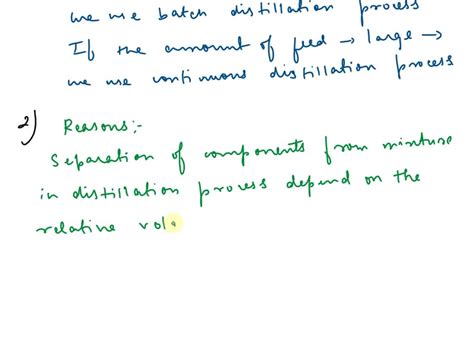 we use batch distillation process
If the amount of feed → large →
we use continuous distillation process
2) Reasons:-
Separation of components from mixture
in distillation process depend on the
relative vola